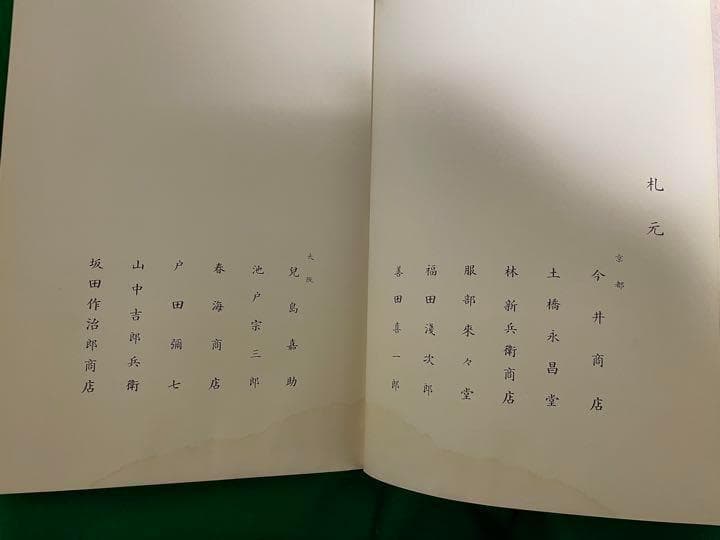 札元
京都
今井商店
土橋永昌堂
林新兵衛商店
服部來々堂
福田淺次郎
善田喜一郎
大阪
兒島嘉助
池戸宗三郎
春海商店
戸田彌七
山中吉郎兵衛
坂田作治郎商店